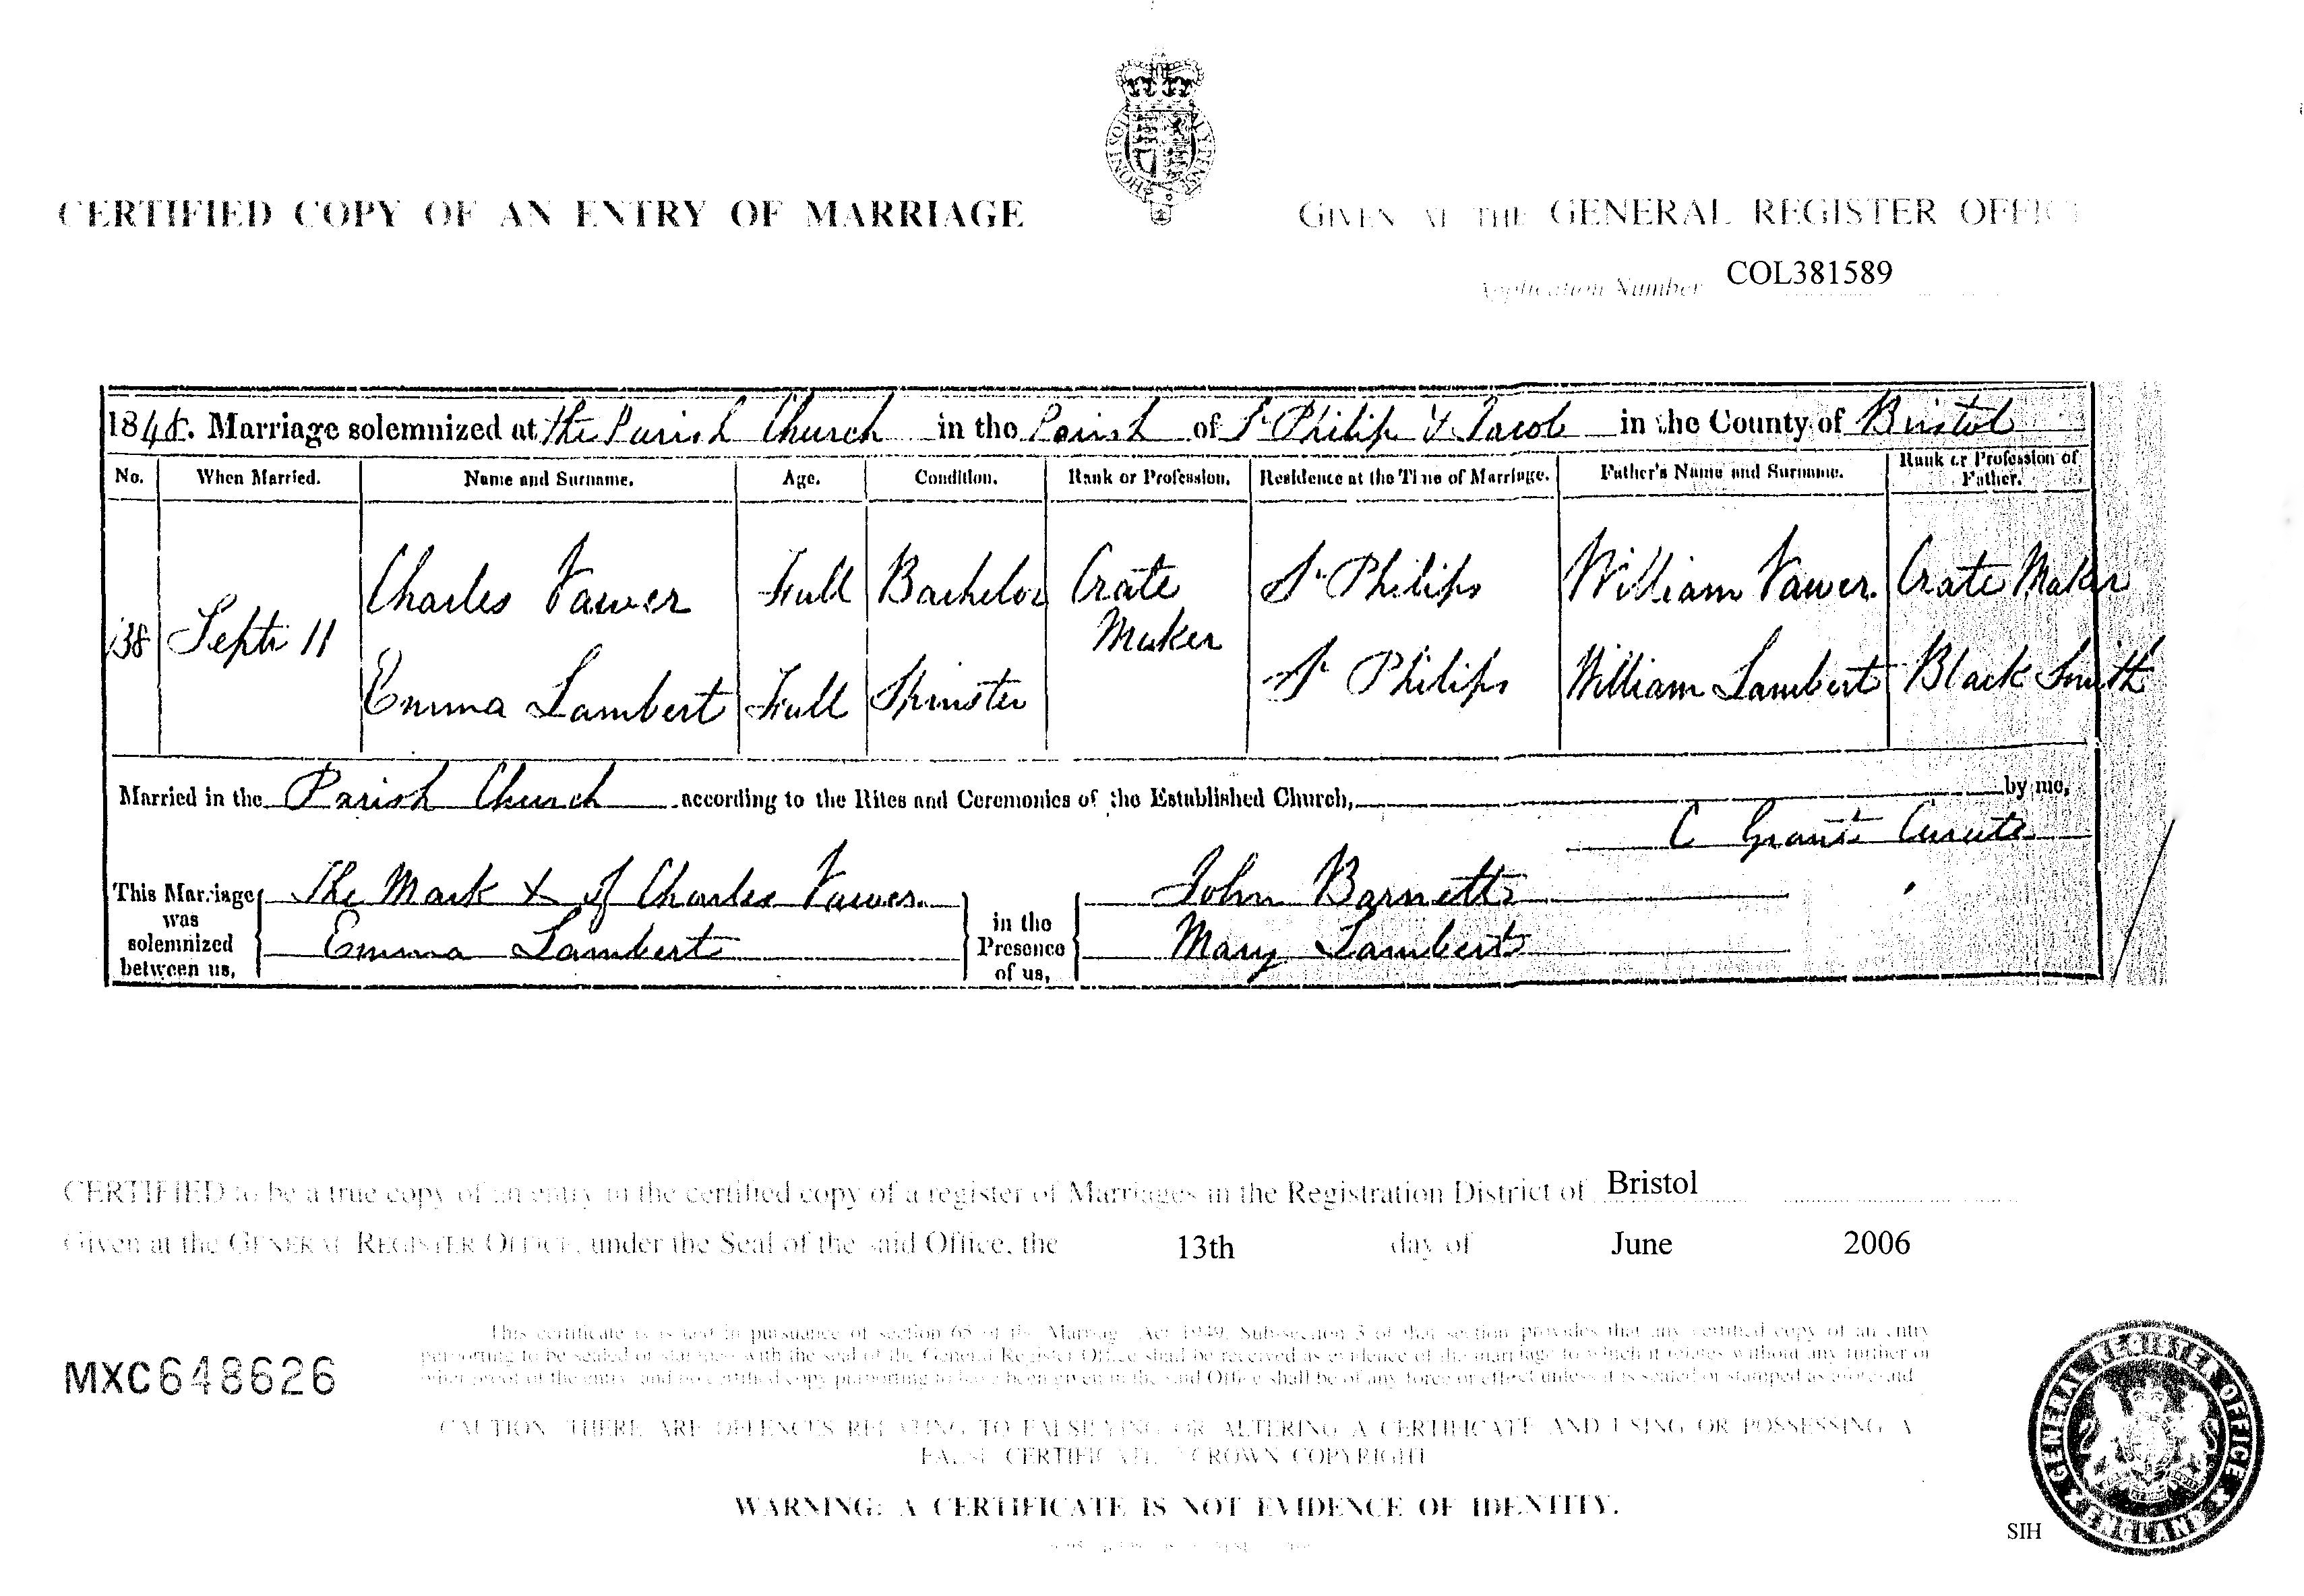 HONI SOIT QUI MAL Y PENSE
CERTIFIED COPY OF AN ENTRY OF MARRIAGE
GIVEN AT THE GENERAL REGISTER OFFICE
Application Number COL381589
1848. Marriage solemnized at the Parish Church in the Parish of St Philip & Jacob in the County of Bristol
No. When Married. Name and Surname. Age. Condition. Rank or Profession. Residence at the Time of Marriage. Father's Name and Surname. Rank or Profession of Father.
138 Septr 11 Charles Vawer Full Bachelor Crate Maker St Philips William Vawer. Crate Maker
Emma Lambert Full Spinster St Philips William Lambert Black Smith
Married in the Parish Church according to the Rites and Ceremonies of the Established Church, by me,
C Grant Curate
This Marriage was solemnized between us, The Mark X of Charles Vawer. in the Presence of us, John Barnett
Emma Lambert Mary Lambert
CERTIFIED to be a true copy of an entry in the certified copy of a register of Marriages in the Registration District of Bristol
Given at the GENERAL REGISTER OFFICE, under the Seal of the said Office, the 13th day of June 2006
This certificate is issued in pursuance of section 65 of the Marriage Act 1949. Sub-section 3 of that section provides that any certified copy of an entry
purporting to be sealed or stamped with the seal of the General Register Office shall be received as evidence of the marriage to which it relates without any further or
other proof of the entry, and no certified copy purporting to have been given in the said Office shall be of any force or effect unless it is sealed or stamped as aforesaid.
MXC648626
CAUTION: THERE ARE OFFENCES RELATING TO FALSIFYING OR ALTERING A CERTIFICATE AND USING OR POSSESSING A
FALSE CERTIFICATE. CROWN COPYRIGHT
WARNING: A CERTIFICATE IS NOT EVIDENCE OF IDENTITY.
GENERAL REGISTER OFFICE
ENGLAND
SIH